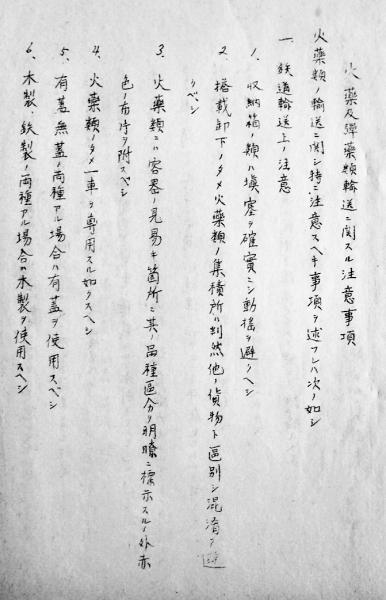 火藥及彈藥類輸送ニ関スル注意事項
火藥類ノ輸送ニ関シ特ニ注意スヘキ事項ヲ述フレハ次ノ如シ
一、鉄道輸送上ノ注意
1、収納箱ノ類ハ填塞ヲ確實ニシ動搖ヲ避クヘシ
2、搭載卸下ノタメ火藥類ノ集積所ハ判然他ノ貨物ト區別シ混淆ヲ避
クベシ
3、火藥類ニハ容器ノ見易キ箇所ニ其ノ品種區分ヲ明瞭ニ標示スルノ外赤
色ノ布片ヲ附スベシ
4、火藥類ノタメ一車ヲ専用スル如クスヘシ
5、有蓋無蓋ノ両種アル場合ハ有蓋ヲ使用スベシ
6、木製、鉄製ノ両種アル場合ハ木製ヲ使用スヘシ